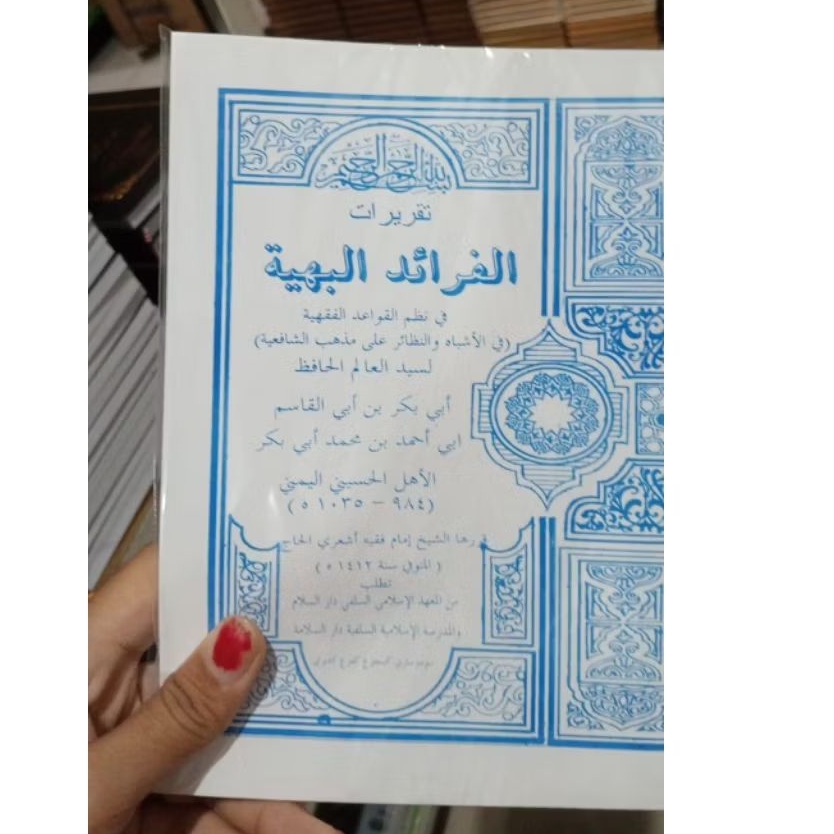 بسم الله الرحمن الرحيم
تقريرات
الفرائد البهية
في نظم القواعد الفقهية
(في الأشباه والنظائر على مذهب الشافعية)
لسيد العالم الحافظ
أبي بكر بن أبي القاسم
ابي أحمد بن محمد أبي بكر
الأهل الحسيني اليمني
(٩٨٤ – ١٠٣٥ ه)
قررها الشيخ إمام فقيه أشعري الحاج
(المتوفي سنة ١٤١٢ ه)
تطلب
من المعهد الإسلامي السلفي دار السلام
والمدرسة الإسلامية السلفية دار السلامة